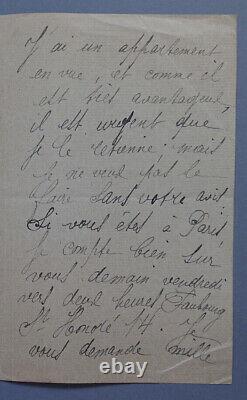 J'ai un appartement
en vue, et comme il
est très avantageux,
il est urgent que
je le retienne mais
je ne veux pas le
faire sans votre avis
Si vous êtes à Paris
Je compte bien sur
vous demain vendredi
vers deux heures Faubourg
St Honoré 14. Je
vous demande mille
© 000.fr